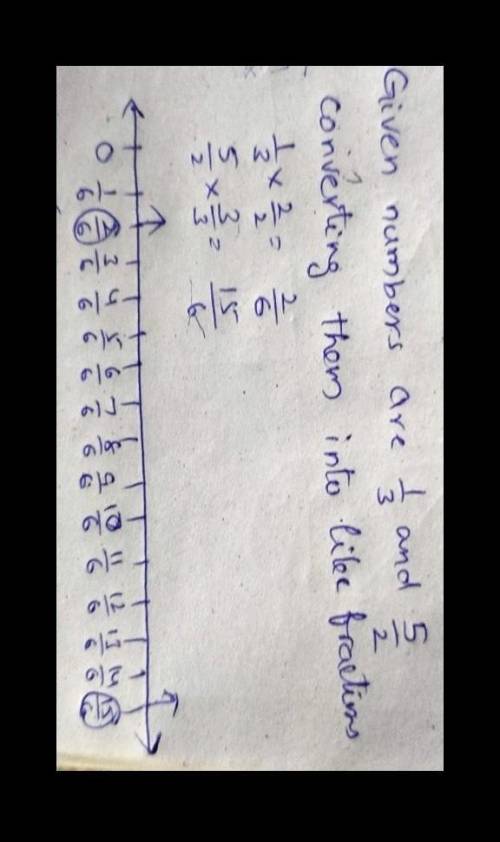 Given numbers are 1/3 and 5/2
converting them into like fractions
1/3 × 2/2 = 2/6
5/2 × 3/3 = 15/6
0 1/6 2/6 3/6 4/6 5/6 6/6 7/6 8/6 9/6 10/6 11/6 12/6 13/6 14/6 15/6